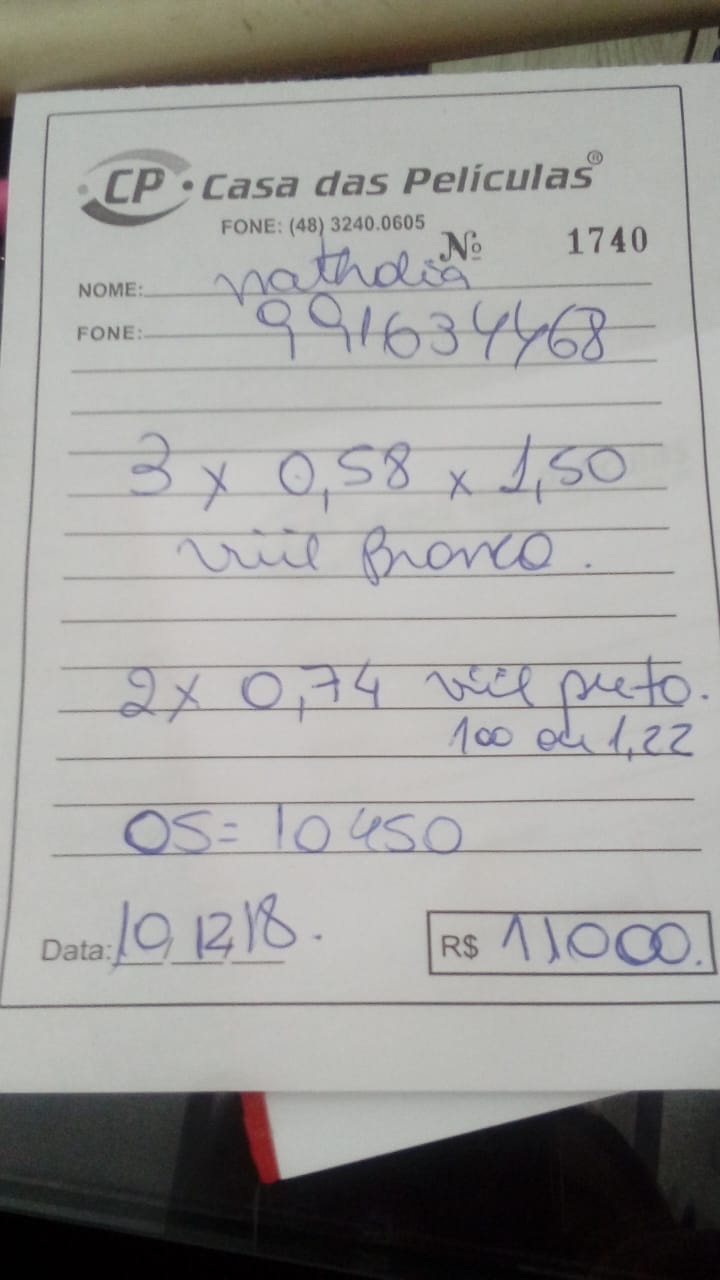 CP · Casa das Películas®
FONE: (48) 3240.0605
Nº 1740
NOME: Nathalia
FONE: 991634468
3 x 0,58 x 1,50
viil Branco.
2 x 0,74 viil preto.
100 ou 1,22
OS = 10450
Data: 10, 12, 18.
R$ 11000.